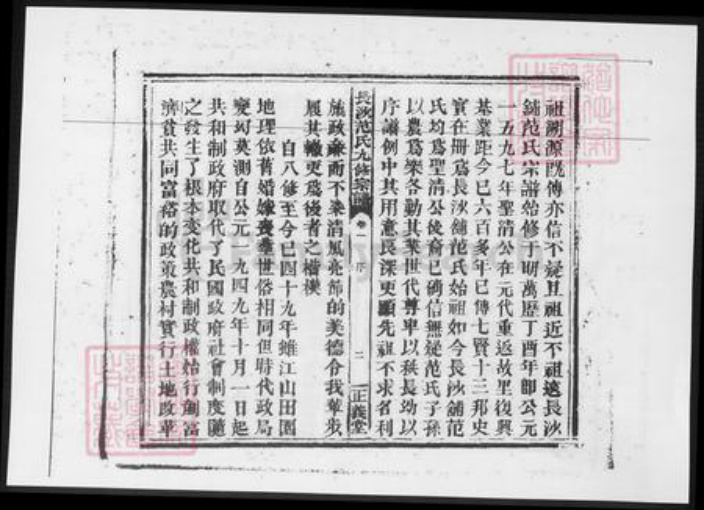 祖溯源既傳亦信不疑且祖近不祖遠長沙
舖范氏宗譜始修于明萬歷丁酉年即公元
一五九七年聖清公在元代重返故里復興
基業距今已六百多年已傳七賢十三邦史
實在冊爲長沙舖范氏始祖如今長沙舖范
氏均爲聖清公後裔已确信無疑范氏子孫
以農爲樂各勤其業世代尊卑以秩長幼以
序譜例中其用意長深更顯先祖不求名利
長沙范氏九修宗譜 卷一 序 二 正義堂
施政廉而不染清風亮節的美德令我輩永
履其轍更爲後者之楷模
自八修至今已四十九年雖江山田園
地理依舊婚嫁喪葬世俗相同但時代政局
變幻莫測自公元一九四九年十月一日起
共和制政府取代了民國政府社會制度隨
之發生了根本变化共和制政權始行劃富
濟貧共同富裕的政策農村實行土地改革